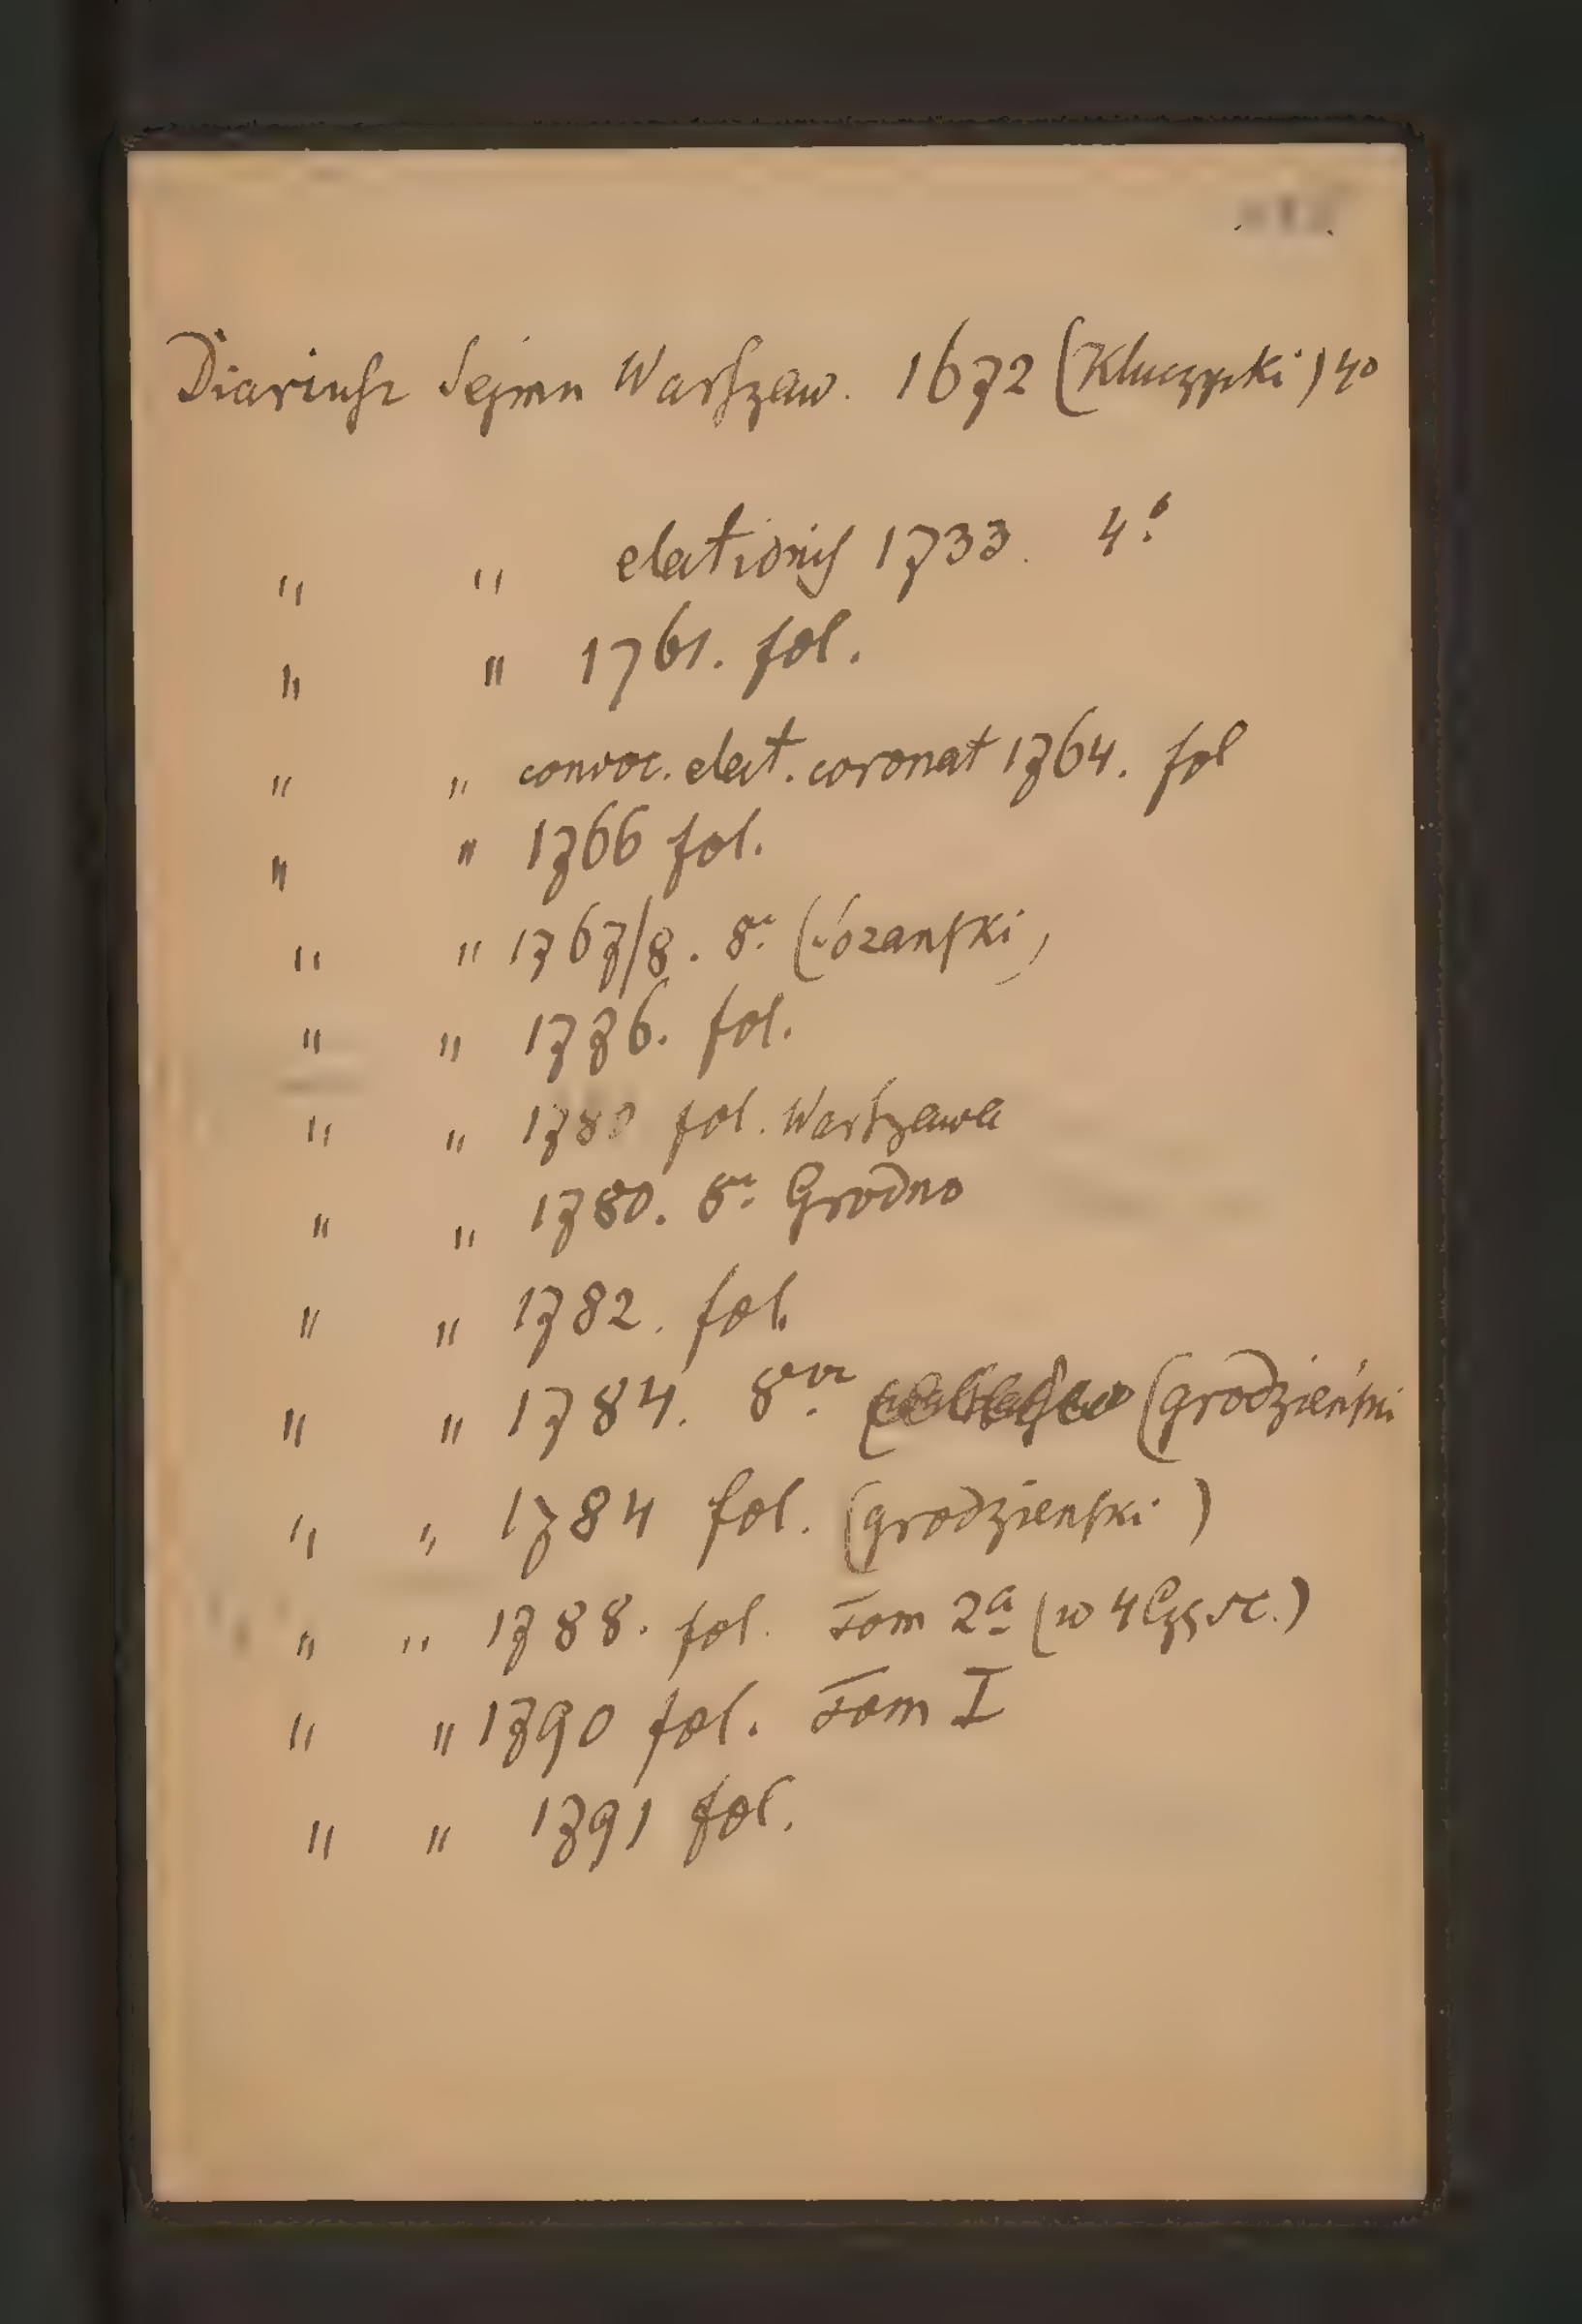 Diariusz Sejmu Warszaw. 1672 (Kluczycki) 4o
" " electionis 1733. 4o
" " 1761. fol.
" " convoc. elect. coronat 1764. fol
" " 1766 fol.
" " 1767/8. 8o
" " 1776. fol.
" " 1780 fol. Warszawa
" " 1780. 8o Grodno
" " 1782. fol.
" " 1784. 8vo (grodzieński
" " 1784 fol. (grodzieński)
" " 1788. fol. Tom 2a (w 4 Częśc.)
" " 1790 fol. Tom I
" " 1791 fol.